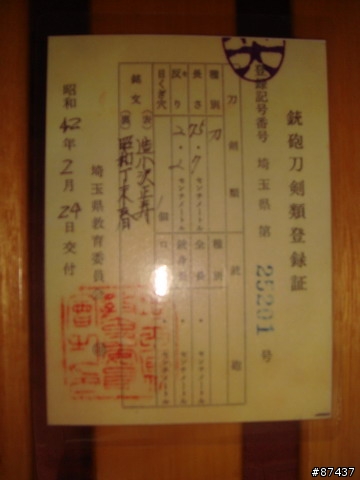 銃砲刀剣類登録証
登録記号番号 埼玉県 第 25201 号
刀剣類 銃砲
種別 刀 種別
長さ 75.7 センチメートル 全長 . センチメートル
反り 2. センチメートル 銃身長 . センチメートル
目くぎ穴 個 口 . センチメートル
銘文 (表)
(裏) 昭和丁未
昭和42年2月24日交付
埼玉県教育委員
#87437